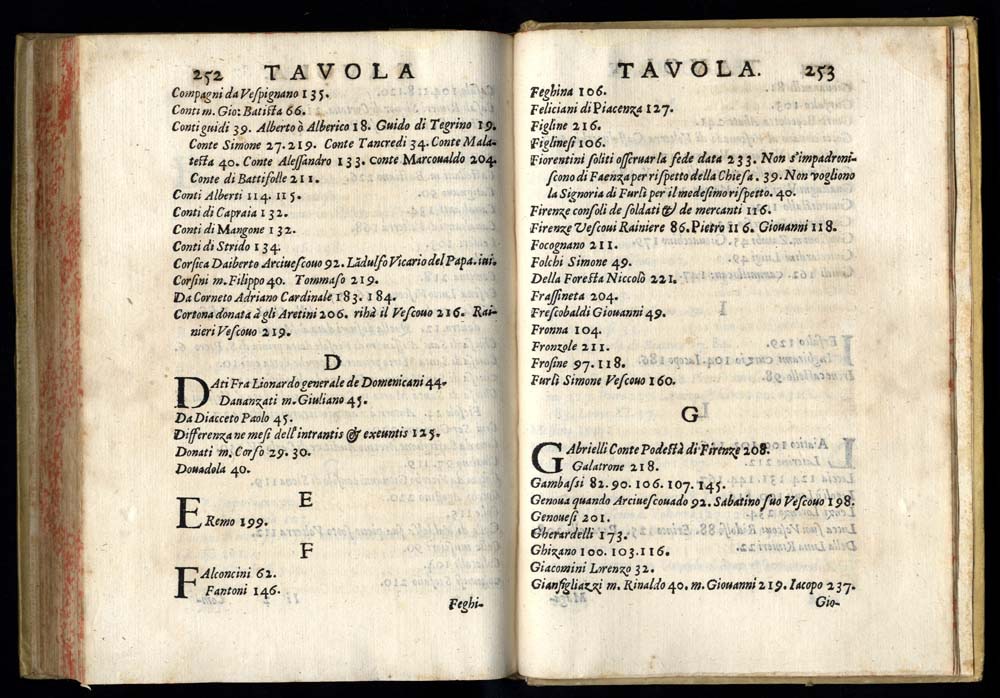 252 TAVOLA
Compagni da Vespignano 135.
Conti m. Gio: Batista 66.
Conti guidi 39. Alberto ò Alberico 18. Guido di Tegrino 19.
Conte Simone 27. 219. Conte Tancredi 34. Conte Mala-
testa 40. Conte Alessandro 133. Conte Marcoualdo 204.
Conte di Battifolle 211.
Conti Alberti 114. 115.
Conti di Capraia 132.
Conti di Mangone 132.
Conti di Strido 134.
Corsica Daiberto Arciuescouo 92. Lãdulfo Vicario del Papa. iui.
Corsini m. Filippo 40. Tommaso 219.
Da Corneto Adriano Cardinale 183. 184.
Cortona donata à gli Aretini 206. rihà il Vescouo 216. Rai-
nieri Vescouo 219.
D
DAti Fra Lionardo generale de Domenicani 44.
Dauanzati m. Giuliano 45.
Da Diacceto Paolo 45.
Differenza ne mesi dell'intrantis & exeuntis 125.
Donati m. Corso 29. 30.
Douadola 40.
E
ERemo 199.
F
FAlconcini 62.
Fantoni 146.
Feghi-
TAVOLA. 253
Feghina 106.
Feliciani di Piacenza 127.
Figline 216.
Figlinesi 106.
Fiorentini soliti osseruar la fede data 233. Non s'impadroni-
scono di Faenza per rispetto della Chiesa. 39. Non vogliono
la Signoria di Furlì per il medesimo rispetto. 40.
Firenze consoli de soldati & de mercanti 116.
Firenze Vescoui Rainiere 86. Pietro 116. Giouanni 118.
Focognano 211.
Folchi Simone 49.
Della Foresta Niccolò 221.
Frassineta 204.
Frescobaldi Giouanni 49.
Fronna 104.
Fronzole 211.
Frosine 97. 118.
Furlì Simone Vescouo 160.
G
GAbrielli Conte Podestà di Firenze 208.
Galatrone 218.
Gambassi 82. 90. 106. 107. 145.
Genoua quando Arciuescouado 92. Sabatino suo Vescouo 198.
Genouesi 201.
Gherardelli 173.
Ghizano 100. 103. 116.
Giacomini Lorenzo 32.
Gianfigliazzi m. Rinaldo 40. m. Giouanni 219. Iacopo 237.
Gio-